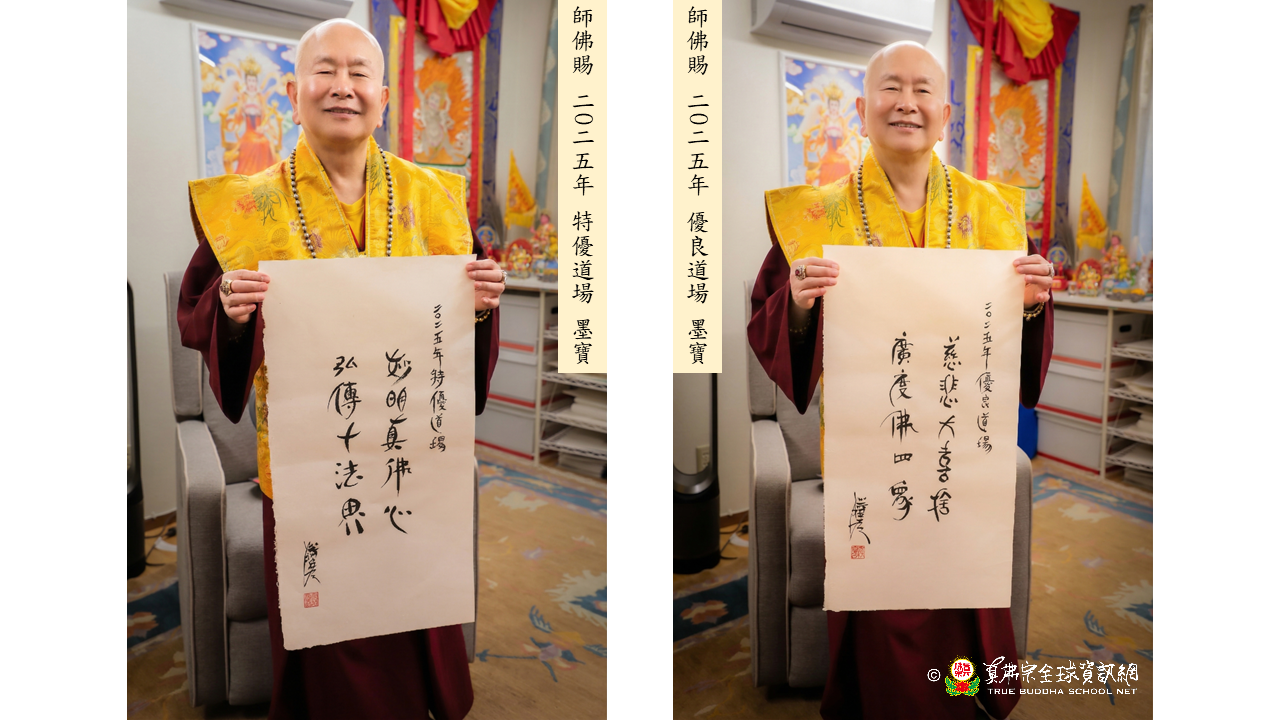 師佛賜 二〇二五年 特優道場 墨寶
二〇二五年特優道場
妙明真佛心
弘傳十法界
師佛賜 二〇二五年 優良道場 墨寶
二〇二五年優良道場
慈悲大喜捨
廣度佛四眾
© 真佛宗全球資訊網
TRUE BUDDHA SCHOOL NET